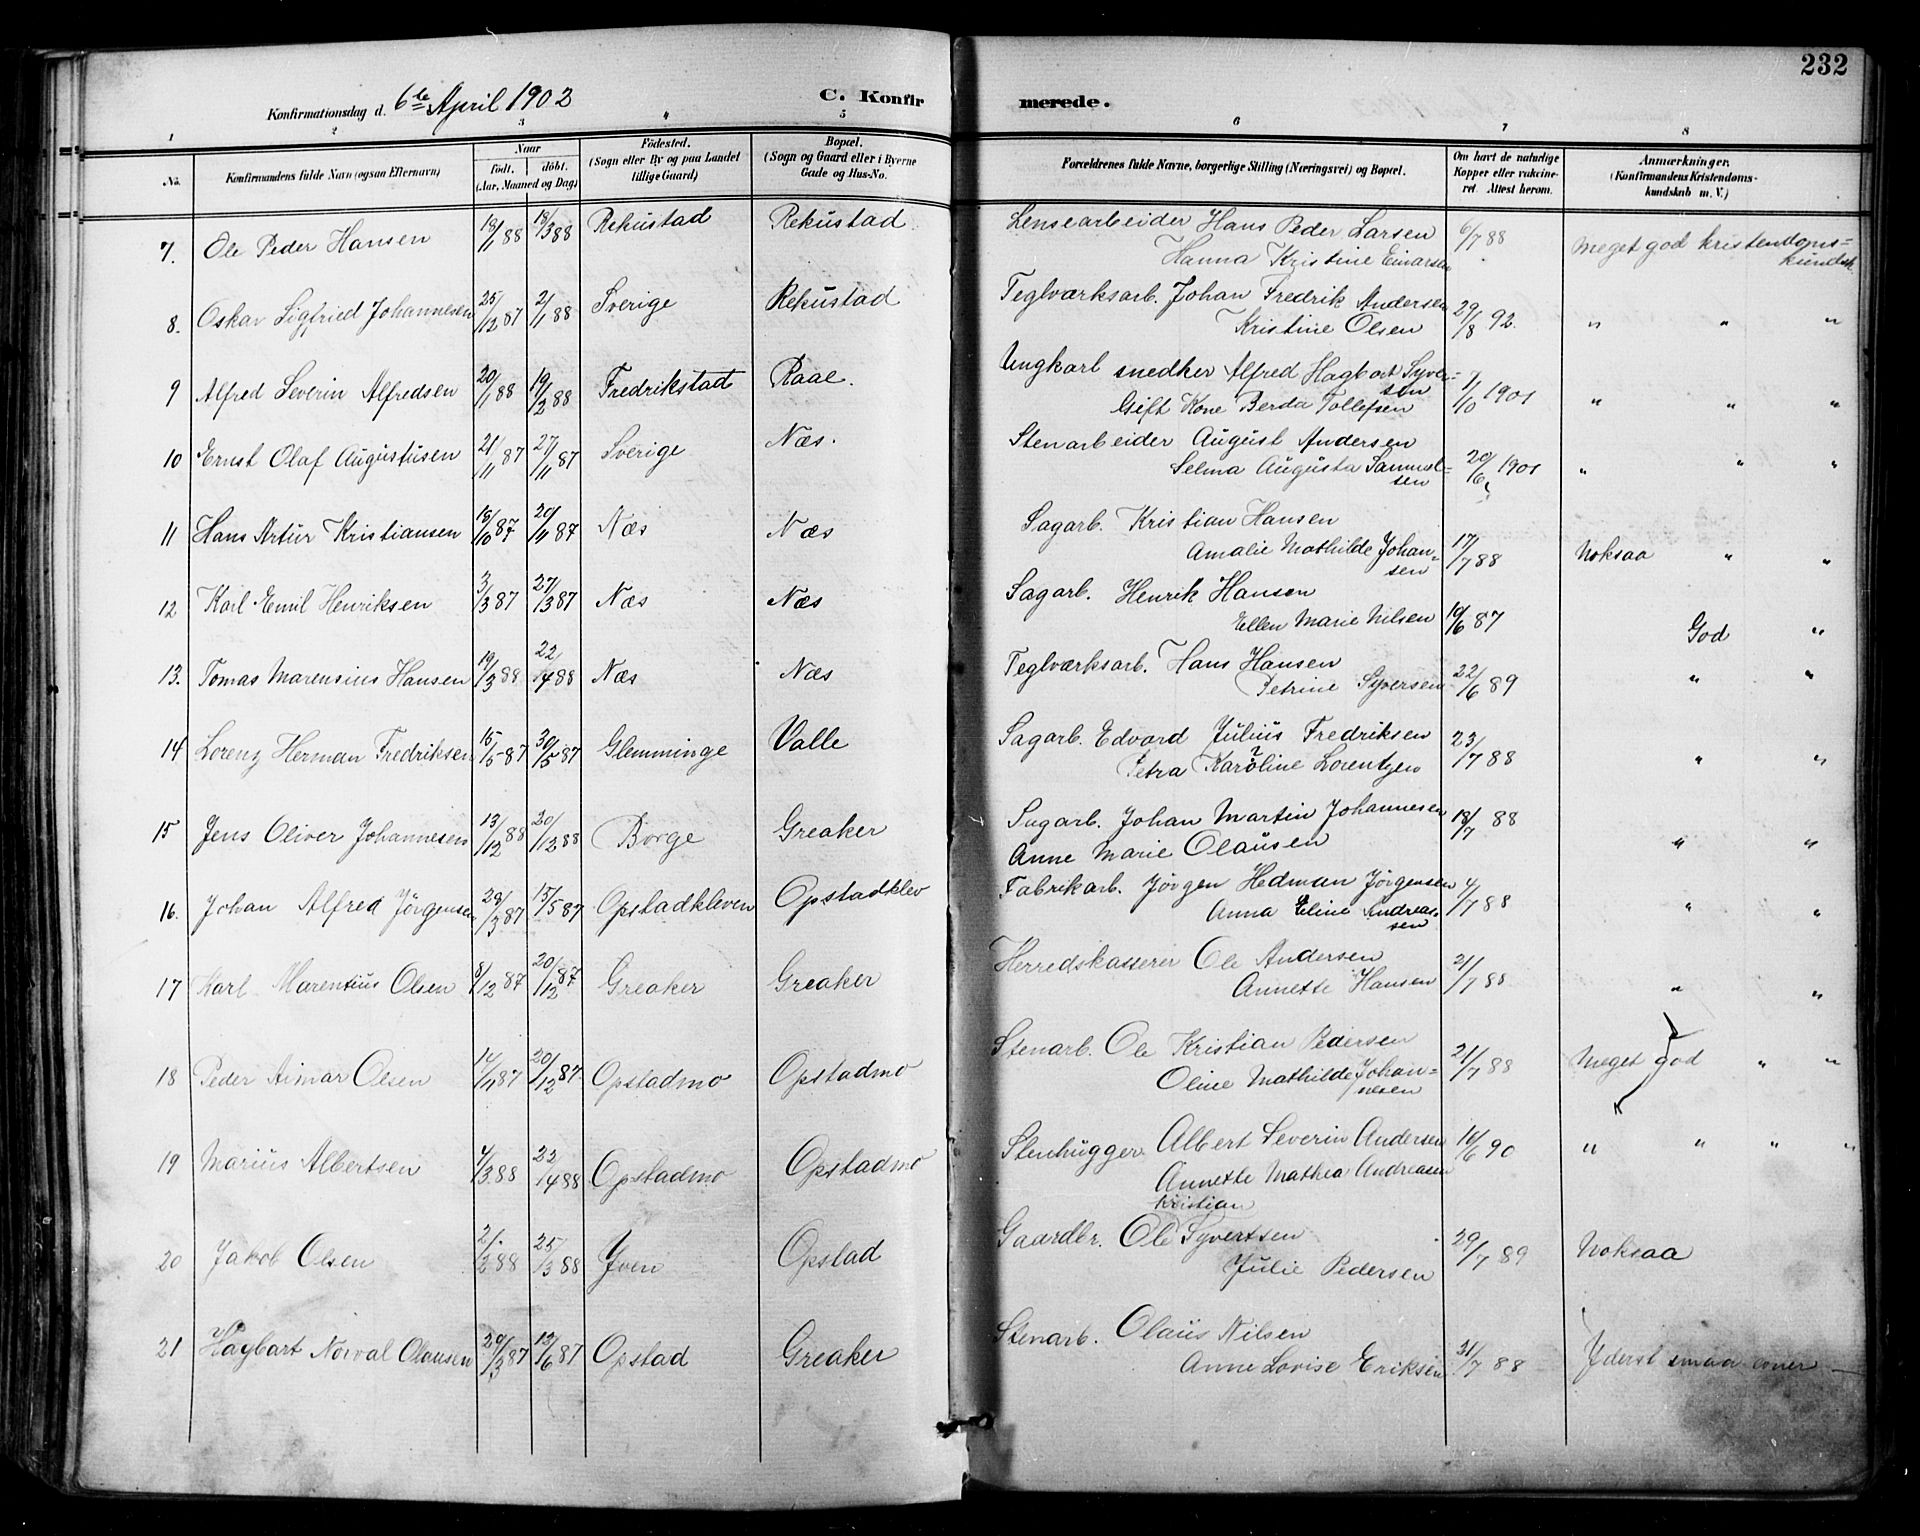 232
Konfirmationsdag d. 6te April 1902
C. Konfirmerede.
1 2 3 4 5 6 7 8
No. Konfirmandens fulde Navn (ogsaa Efternavn) Naar født. døbt. (Aar, Maaned og Dag) Fødested. (Sogn eller By og paa Landet tillige Gaard) Bopæl. (Sogn og Gaard eller i Byerne Gade og Hus-No. Forældrenes fulde Navne, borgerlige Stilling (Næringsvei) og Bopæl. Om havt de naturlige Kopper eller vaccineret. Attest herom. Anmærkninger. (Konfirmandens Kristendomskundskab m. V.)
7. Ole Peder Hansen 18/1 88 18/3 88 Rekustad Rekustad Lensearbeider Hans Peder Larsen 6/7 88 Meget god kristendoms=
Hanna Kristine Einarsen kundsk.
8. Oskar Sigfried Johannesen 25/12 87 2/1 88 Sverige Rekustad Teglværksarb. Johan Fredrik Andersen
Kristine Olsen 29/8 92. " " "
9 Alfred Severin Alfredsen 20/1 88 19/2 88 Fredrikstad Raae. Ungkarl snedker Alfred Hagbart Syver=
sen
Gift Kone Berda Tollefsen 7/10 1901 " " "
10 Ernst Olaf Augustusen 21/11 87 27/11 87 Sverige Næs. Stenarbeider August Andersen
Selma Augusta Samuel= 20/6 1901 " " "
sen
11 Hans Artur Kristiansen 15/10 87 20/11 87 Næs Næs Sagarb. Kristian Hansen
Amalie Mathilde Johan= 17/7 88 Noksaa " "
sen
12 Karl Emil Henriksen 3/3 87 27/3 87 Næs Næs Sagarb. Henrik Hansen
Ellen Marie Nilsen 10/6 87 God "
13. Tomas Marensius Hansen 19/3 88 22/4 88 Næs Næs Teglværksarb. Hans Hansen
Petrine Syversen 22/6 89 " "
14 Lorenz Herman Fredriksen 15/5 87 30/5 87 Glemminge Valle Sagarb. Edvard Julius Fredriksen
Petra Karoline Lorentzen 23/7 88 " "
15 Jens Oliver Johannesen 13/12 88 20/12 88 Borge Greaker Sagarb. Johan Martin Johannesen 18/7 88
Anne Marie Olausen " "
16. Johan Alfred Jörgensen 28/3 87 15/5 87 Opstadkleven Opstadklev Fabrikarb. Jörgen Hedman Jörgensen
Anna Eline Andreas= 4/7 88 " "
sen
17 Karl Marentius Olsen 8/12 87 20/12 87 Greaker Greaker Herredskasserer Ole Andersen
Annette Hansen 21/7 88 " "
18 Peder Aimar Olsen 14/11 87 20/12 87 Opstadmo Opstadmo Stenarb. Ole Kristian Pedersen
Oline Mathilde Johan= 21/7 88 Meget god " "
nesen
19 Marius Albertsen 4/3 88 22/4 88 Opstadmo Opstadmo Stenhugger Albert Severin Andersen 10/6 90 " " " "
Annette Mathea Andreasen
kristian
20 Jakob Olsen 2/2 88 25/3 88 Yven Opstad Gaardbr. Ole Syvertsen
Julie Pedersen 29/7 89 Noksaa
21 Hagbart Norval Olausen 29/3 87 12/6 87 Opstad Greaker Stenarb. Olaus Nilsen
Anne Lovise Eriksen 31/7 88 Yderst smaa evner